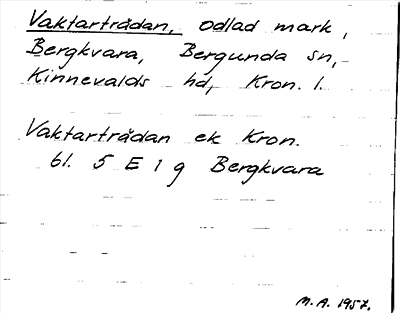 Vaktarträdan, odlad mark,
Bergkvara, Bergunda sn,
Kinnevalds hd, Kron. l.
Vaktarträdan ek Kron.
bl. 5 E 1 g Bergkvara
M.A. 1957.